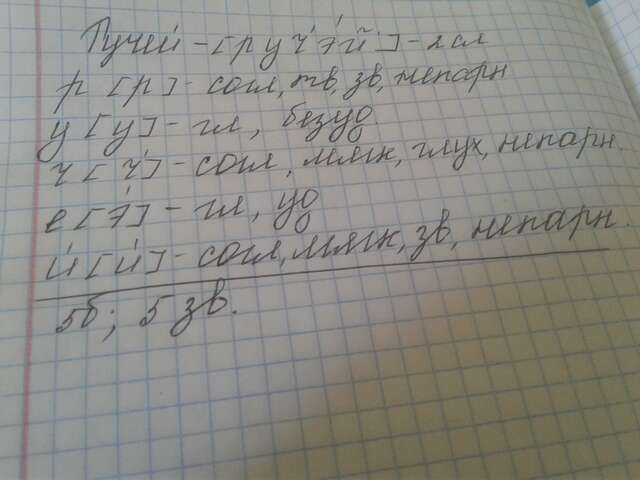 Ручей - [руч'эй'] - 2 сл
р [р] - согл, тв, зв, непарн
у [у] - гл, безуд
ч [ч'] - согл, мягк, глух, непарн.
е [э́] - гл, уд
й [й'] - согл, мягк, зв, непарн.
5б; 5 зв.